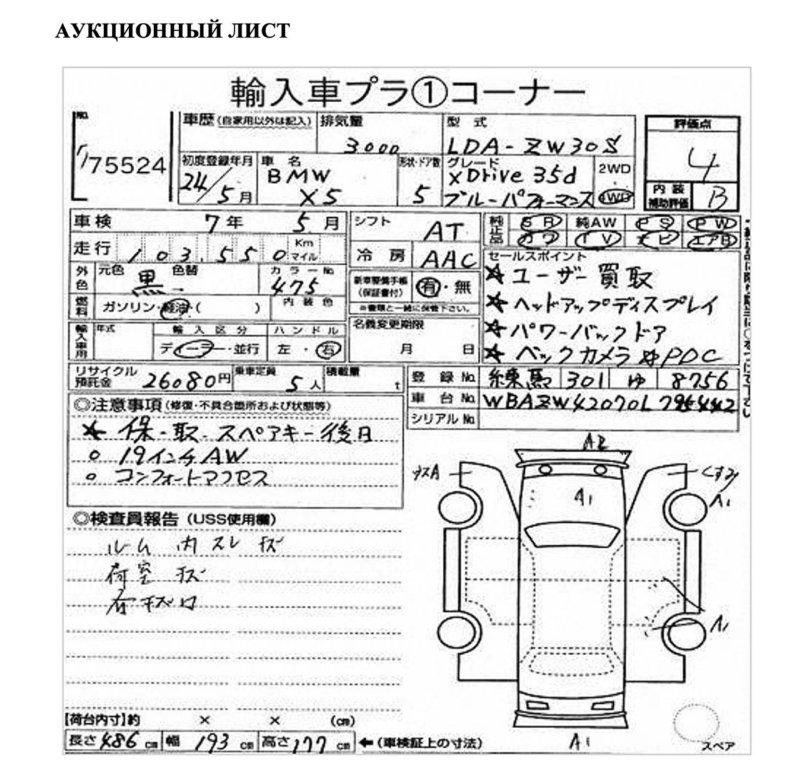 АУКЦИОННЫЙ ЛИСТ
輸入車プラ①コーナー
No.
75524
車歴 (自家用以外は記入)
排気量
3000
型式
LDA-ZW30S
評価点
4
内装補助評価
B
初度登録年月
24/5月
車名
BMW X5
形状・ドア数
5
グレード
xDrive 35d
ブルーパフォーマンス
2WD
4WD
車検 7年 5月
シフト AT
純正品 SR 純AW PS PW
カワ TV ナビ エアB
走行 103,550 Km マイル
冷房 AAC
セールスポイント
★ユーザー買取
★ヘッドアップディスプレイ
★パワーバックドア
★バックカメラ PDC
外色 元色 黒 色替 カラーNo. 475
新車整備手帳(保証書付) 有・無
※書類と一緒に保管下さい。
燃料 ガソリン・軽油・( ) 内装色
名義変更期限 月 日
輸入車用 年式 輸入区分 ハンドル
ディーラー・並行 左・右
リサイクル預託金 26080円 乗車定員 5人 積載量 t
登録No. 練馬 301 ゆ 8756
車台No. WBAZW42070L795442
シリアルNo.
◎注意事項 (修復・不具合箇所および状態等)
★保・取・スペアキー後日
○19インチAW
○コンフォートアクセス
◎検査員報告 (USS使用欄)
ルーム内スレ キズ
荷室 キズ
各キズ
A2
キズA
くすみ
A1
A1
A1
A1
スペア
【荷台内寸】約 × × (cm)
長さ486cm 幅193cm 高さ177cm ←(車検証上の寸法)